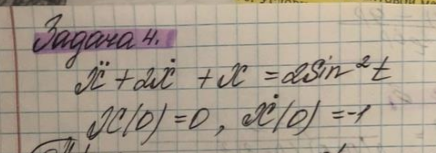 Задача 4.
ẍ + 2ẋ + x = 2sin²t
x(0) = 0, ẋ(0) = -1